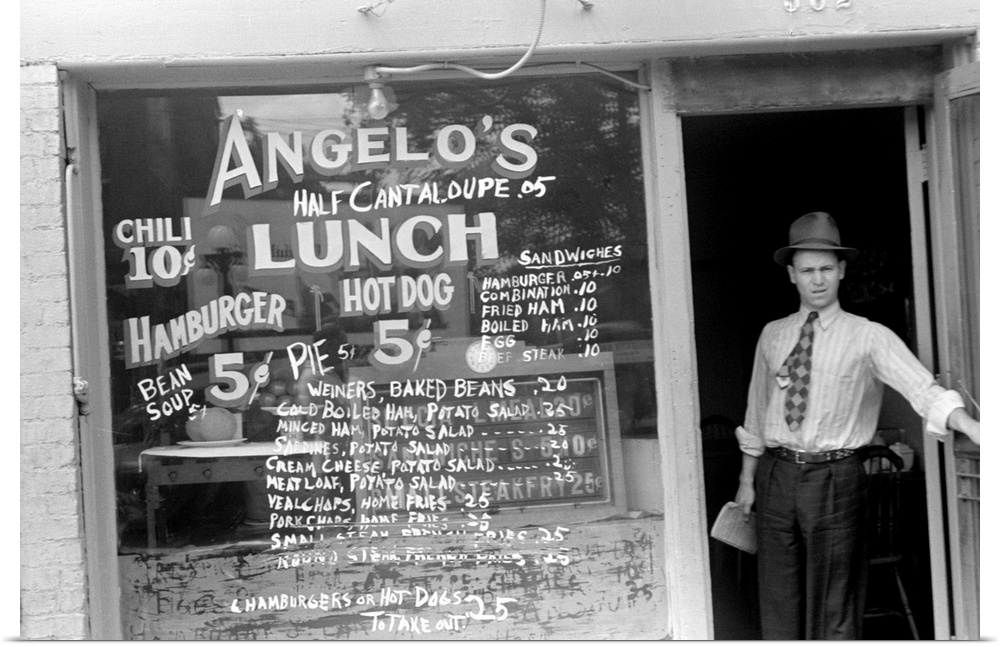 502
ANGELO'S
HALF CANTALOUPE .05
CHILI
10¢
LUNCH
HAMBURGER
5¢
HOT DOG
5¢
PIE 5¢
BEAN
SOUP
5¢
SANDWICHES
HAMBURGER .05 & .10
COMBINATION .10
FRIED HAM .10
BOILED HAM .10
EGG .10
BEEF STEAK .10
WEINERS, BAKED BEANS .20
COLD BOILED HAM, POTATO SALAD .25
MINCED HAM, POTATO SALAD .25
SARDINES, POTATO SALAD .20
CREAM CHEESE, POTATO SALAD
MEAT LOAF, POTATO SALAD .25
VEAL CHOPS, HOME FRIES .25
PORK CHOPS, HOME FRIES
SMALL STEAK FRENCH FRIES .25
ROUND STEAK, FRENCH FRIES .25
HAMBURGERS OR HOT DOGS 25
TO TAKE OUT.